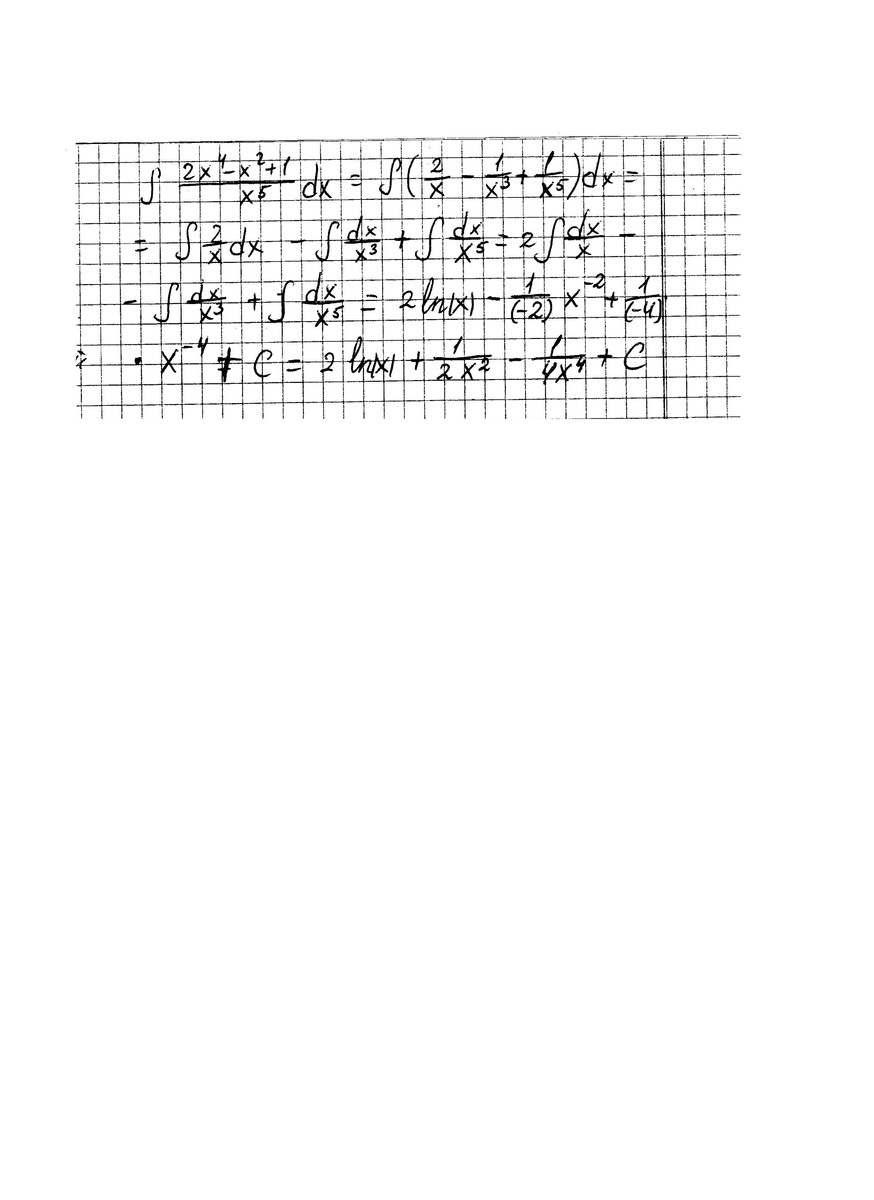 ∫ (2x⁴-x²+1)/x⁵ dx = ∫(2/x - 1/x³ + 1/x⁵)dx =
= ∫ 2/x dx - ∫ dx/x³ + ∫ dx/x⁵ = 2∫ dx/x -
- ∫ dx/x³ + ∫ dx/x⁵ = 2 ln|x| - 1/(-2) x⁻² + 1/(-4)
· x⁻⁴ + C = 2 ln|x| + 1/(2x²) - 1/(4x⁴) + C